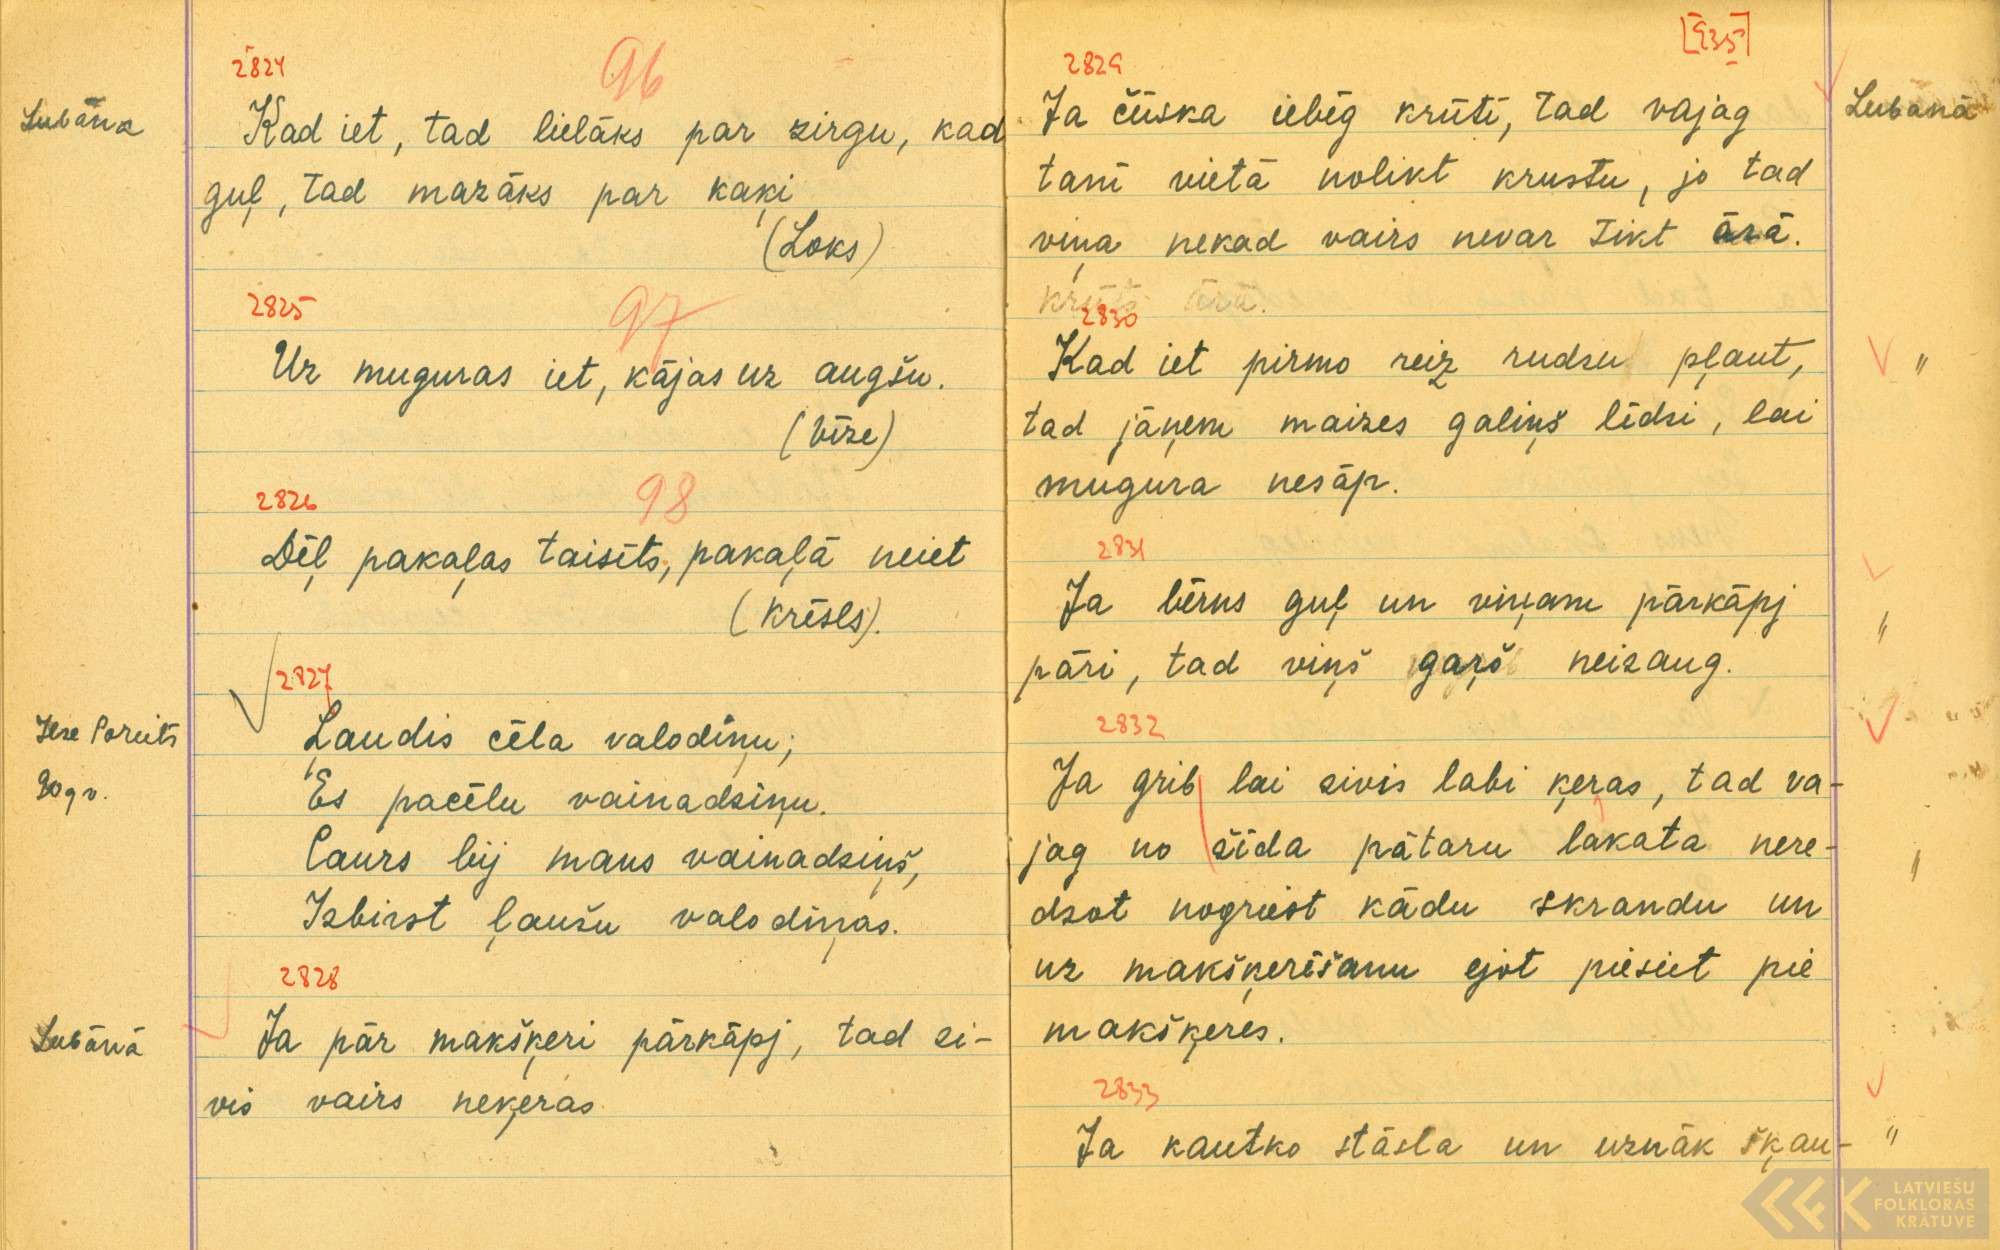 2824
96
Lubāna
Kad iet, tad lielāks par zirgu, kad
guļ, tad mazāks par kaķi
(Loks)
2825
97
Uz muguras iet, kājas uz augšu.
(Vīze)
2826
98
Dēļ pakaļas taisīts, pakaļā neiet
(Krēsls).
2827
Ļaudis cēla valodiņu;
Es pacēlu vainadziņu.
Caurs bij mans vainadziņš,
Izbirst ļaužu valodiņas.
2828
Lubānā
Ja pār makšķeri pārkāpj, tad zi-
vis vairs neķeras
[935]
2829
Ja čūska iebēg krūtī, tad vajag
Lubānā
tanī vietā nolikt krustu, jo tad
viņa nekad vairs nevar tikt ārā.
2830
Kad iet pirmo reiz rudzu pļaut,
"
tad jāņem maizes galiņš līdzi, lai
mugura nesāp.
2831
Ja bērns guļ un viņam pārkāpj
"
pāri, tad viņš garš neizaug.
2832
Ja grib lai zivis labi ķeras, tad va-
jag no žīda pātaru lakata nere-
"
dzot nogriezt kādu skrandu un
uz makšķerēšanu ejot piesiet pie
makšķeres.
2833
Ja kautko stāsta un uznāk šķau-
"
LATVIEŠU
FOLKLORAS
KRĀTUVE